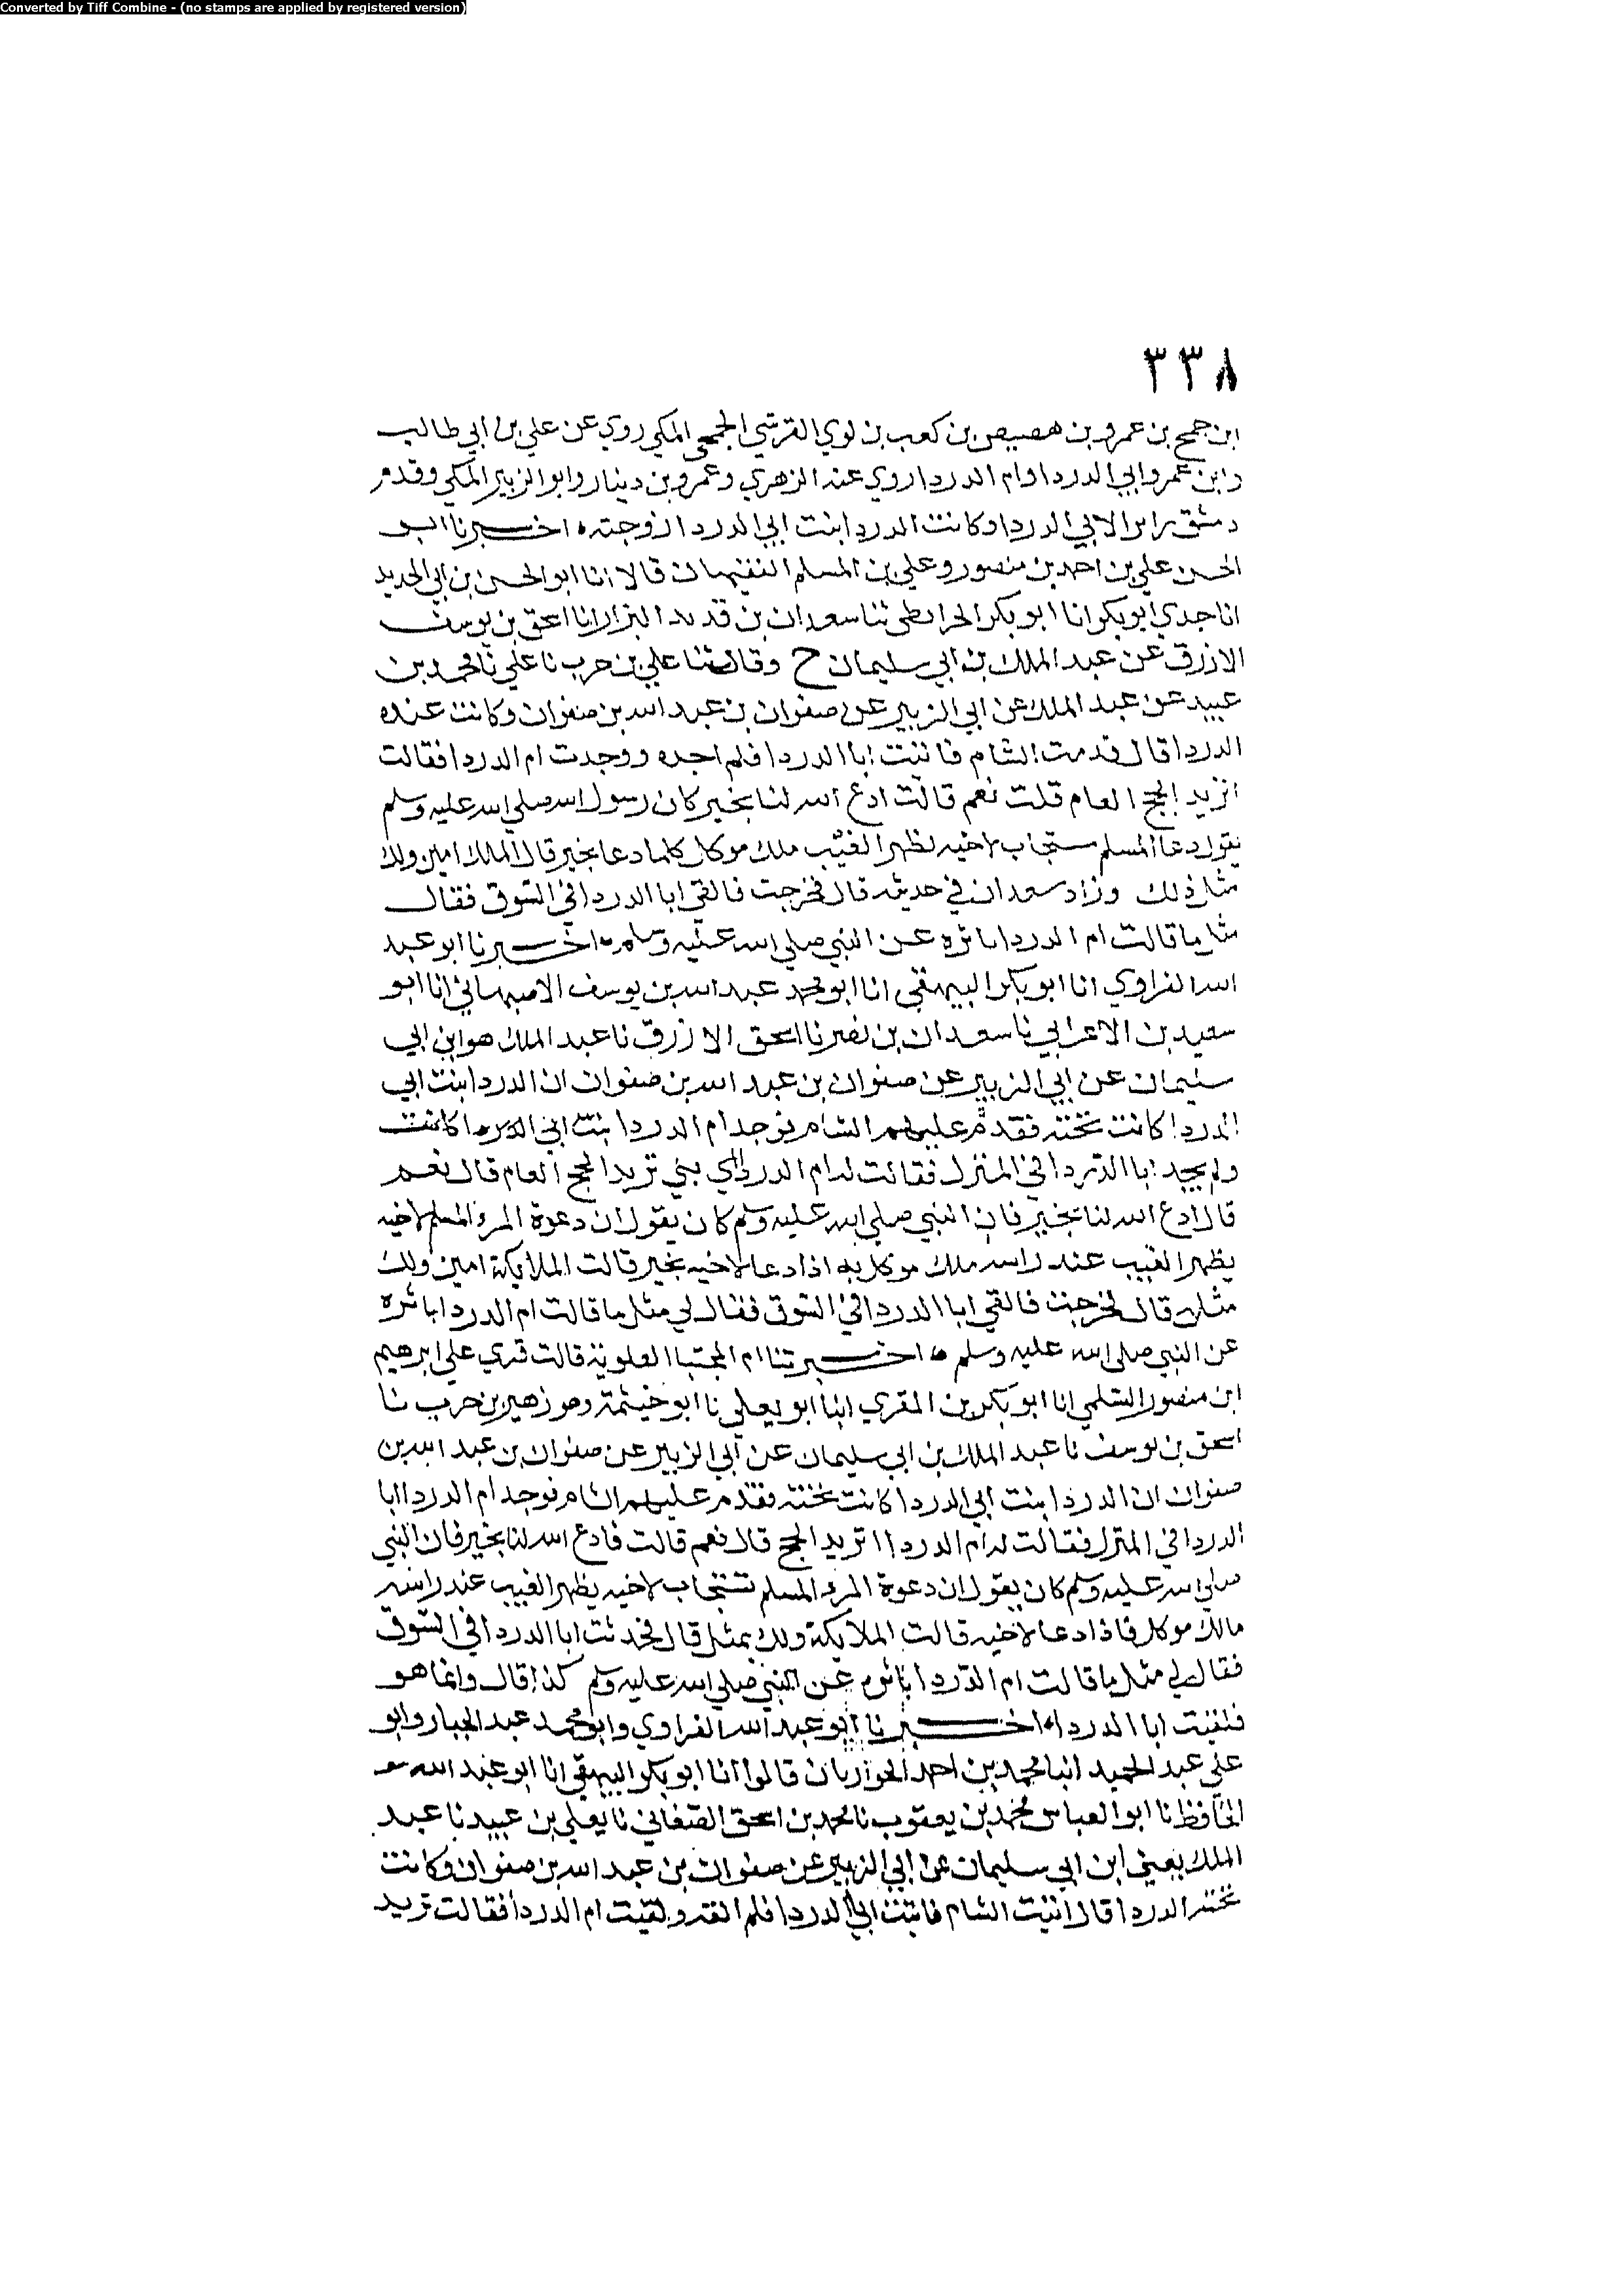 Converted by Tiff Combine - (no stamps are applied by registered version)
٣٣٨
ابن جمح بن عمرو بن هصيص بن كعب بن لوي القرشي الجمحي المكي روي عن علي بن ابي طالب
وابن عمر وابي الدردا وام الدردا روي عنه الزهري وعمرو بن دينار وابو الزبير المكي وقدم
دمشق زايرا لابي الدردا وكانت الدردا بنت ابي الدردا زوجته ه اخبرنا ابو
الحسن علي بن احمد بن منصور وعلي بن المسلم الفقيهان قالا انا ابو الحسن بن ابي الحديد
انا جدي ابو بكر انا ابو بكر الخرايطي ثنا سعدان بن البزار انا اسحق بن يوسف
الازرق عن عبد الملك بن ابي سليمان ح وقال ثنا علي بن حرب نا علي نا محمد بن
عبيد عن عبد الملك عن ابي الزبير عن صفوان بن عبد الله بن صفوان وكانت عنده
الدردا قال قدمت الشام فاتيت ابا الدردا فلم اجده ووجدت ام الدردا فقالت
اتريد الحج العام قلت نعم قالت ادع الله لنا بخير كان رسول الله صلي الله عليه وسلم
يقول دعا المسلم مستجاب لاخيه بظهر الغيب ملك موكل كلما دعا بخير قال الملك امين ولك
مثل ذلك وزاد سعدان في حديثه قال فخرجت فالقي ابا الدردا في السوق فقال
مثل ما قالت ام الدردا ياثره عن النبي صلي الله عليه وسلم ه اخبرنا ابو عبد
الله الفراوي انا ابو بكر البيهقي انا ابو محمد عبد الله بن يوسف الاصبهاني انا ابو
سعيد بن الاعرابي نا سعدان بن نصر نا اسحق الازرق نا عبد الملك هو ابن ابي
سليمان عن ابي الزبير عن صفوان بن عبد الله بن صفوان ان الدردا بنت ابي
الدردا كانت تحته فقدم عليهم الشام فوجد ام الدردا بنت ابي الدردا كانت
ولم يجد ابا الدردا في المنزل فقالت له ام الدردا اي بني تريد الحج العام قال نعم
قال ادع الله لنا بخير فان النبي صلي الله عليه وسلم كان يقول ان دعوة المرء المسلم لاخيه
بظهر الغيب عند راسه ملك موكل به اذا دعا لاخيه بخير قالت الملايكة امين ولك
مثله قال فخرجت فالقي ابا الدردا في السوق فقال لي مثل ما قالت ام الدردا ياثره
عن النبي صلي الله عليه وسلم ه اخبرتنا ام المجتبا العلوية قالت قري علي ابرهيم
ابن منصور السلمي انا ابو بكر بن المقري انبا ابو يعلي نا ابو خيثمة وهو زهير بن حرب نا
اسحق بن يوسف نا عبد الملك بن ابي سليمان عن ابي الزبير عن صفوان بن عبد الله بن
صفوان ان الدردا بنت ابي الدردا كانت تحته فقدم عليهم الشام فوجد ام الدردا ابا
الدردا في المنزل فقالت له ام الدردا اتريد الحج قال نعم قالت فادع الله لنا بخير فان النبي
صلي الله عليه وسلم كان يقول ان دعوة المرء المسلم تستجاب لاخيه بظهر الغيب عند راسه
مالك موكل فاذا دعا لاخيه قالت الملايكة ولك بمثل قال فحدثت ابا الدردا في السوق
فقال لي مثل ما قالت ام الدردا ياثره عن النبي صلي الله عليه وسلم كذا قال وانما هو
فلقيت ابا الدردا ه اخبرنا ابو عبد الله الفراوي وابو محمد عبد الجبار وابو
علي عبد الحميد انبا محمد بن احمد الخواريان قالوا انا ابو بكر البيهقي انا ابو عبد الله
الحافظ نا ابو العباس محمد بن يعقوب نا محمد بن اسحق الصغاني نا يعلي بن عبيد نا عبد
الملك يعني ابن ابي سليمان عن ابي الزبير عن صفوان بن عبد الله بن صفوان وكانت
تحته الدردا قال اتيت الشام فاتيت ابي الدردا فلم القه ولقيت ام الدردا فقالت تريد